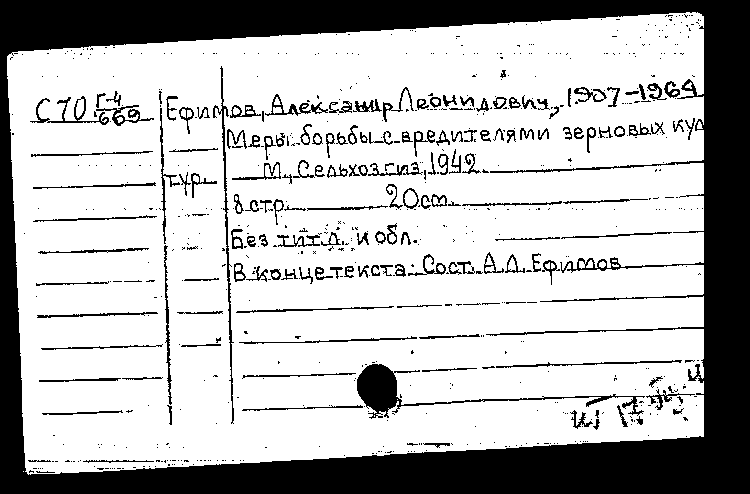 С70 Г-4/669 Ефимов, Александр Леонидович, 1907-1964
Меры борьбы с вредителями зерновых куль
тур. М., Сельхозгиз, 1942.
8 стр. 20 см.
Без тит. л. и обл.
В конце текста: Сост. А.Л. Ефимов